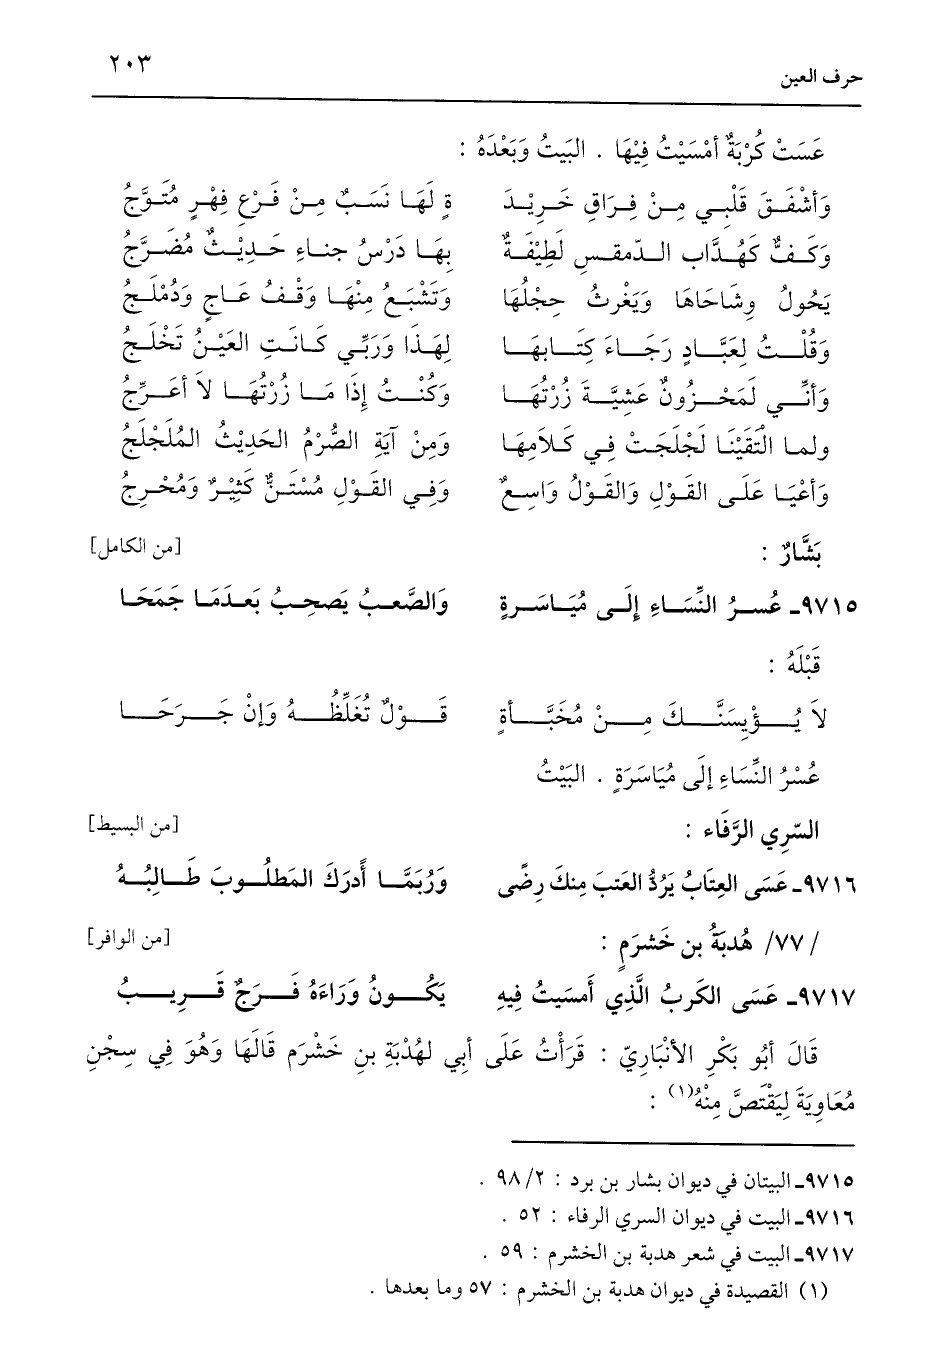 حرف العين ٢٠٣
عَسَتْ كُرْبَةٌ أَمْسَيْتُ فِيْهَا . البَيْتُ وَبَعْدَهُ :
وَأَشْفَقَ قَلْبِي مِنْ فِرَاقِ خَرِيْدَ ةٍ لَهَا نَسَبٌ مِنْ فَرْعِ فِهْرٍ مُتَوَّجُ
وَكَفٌّ كَهُدَّابِ الدّمقسِ لَطِيْفَةٌ بِهَا دَرْسُ حِناءِ حَدِيْثٌ مُضَرَّجُ
يَحُولُ وِشَاحَاهَا وَيَغْرثُ حِجْلُهَا وَتَشْبَعُ مِنْهَا وَقْفُ عَاجٍ وَدُمْلَجُ
وَقُلْتُ لِعَبَّادٍ رَجَاءَ كِتَابِهَا لِهَذَا وَرَبِّي كَانَتِ العَيْنُ تَخْلَجُ
وَأَنِّي لَمَحْزُونٌ عَشِيَّةَ زُرْتُهَا وَكُنْتُ إِذَا مَا زُرْتُهَا لاَ أعَرِّجُ
ولما الْتَقَيْنَا لَجْلَجَتْ فِي كَلاَمِهَا وَمِنْ آيَةِ الصُّرْمُ الحَدِيْثُ المُلَجْلَجُ
وَأَعْيَا عَلَى القَوْلِ وَالقَوْلُ وَاسِعٌ وَفِي القَوْلِ مُسْتَنٌّ كَثِيْرٌ وَمُخْرِجُ
بَشَّارٌ : [من الكامل]
٩٧١٥ـ عُسرُ النِّسَاءِ إِلَى مُيَاسَرةٍ وَالصَّعبُ يَصحِبُ بَعدَمَا جَمَحَا
قَبْلَهُ :
لاَ يُؤْيِسَنَّكَ مِنْ مُخَبَّأَةٍ قَوْلٌ تُغَلِّظُهُ وَإِنْ جَرَحَا
عُسْرُ النِّسَاءِ إلَى مُيَاسَرَةٍ . البَيْتُ
السّرِي الرَّفَاء : [من البسيط]
٩٧١٦ـ عَسَى العِتَابُ يَرُدُّ العَتبَ مِنكَ رِضًى وَرُبَمَّا أَدرَكَ المَطلُوبَ طَالِبُهُ
/٧٧/ هُدبَةُ بن خَشرَمٍ : [من الوافر]
٩٧١٧ـ عَسَى الكَربُ الَّذِي أَمسَيتُ فِيهِ يَكُونُ وَرَاءَهُ فَرَجٌ قَرِيبُ
قَالَ أَبُو بَكْرِ الأَنْبَارِيّ : قَرَأْتُ عَلَى أبِي لهُدْبَةِ بنِ خَشْرَم قَالَهَا وَهُوَ فِي سِجْنِ
مُعَاوِيَةَ لِيَقْتَصَّ مِنْهُ(١) :
٩٧١٥ـ البيتان في ديوان بشار بن برد : ٢/ ٩٨ .
٩٧١٦ـ البيت في ديوان السري الرفاء : ٥٢ .
٩٧١٧ـ البيت في شعر هدبة بن الخشرم : ٥٩ .
(١) القصيدة في ديوان هدبة بن الخشرم : ٥٧ وما بعدها .